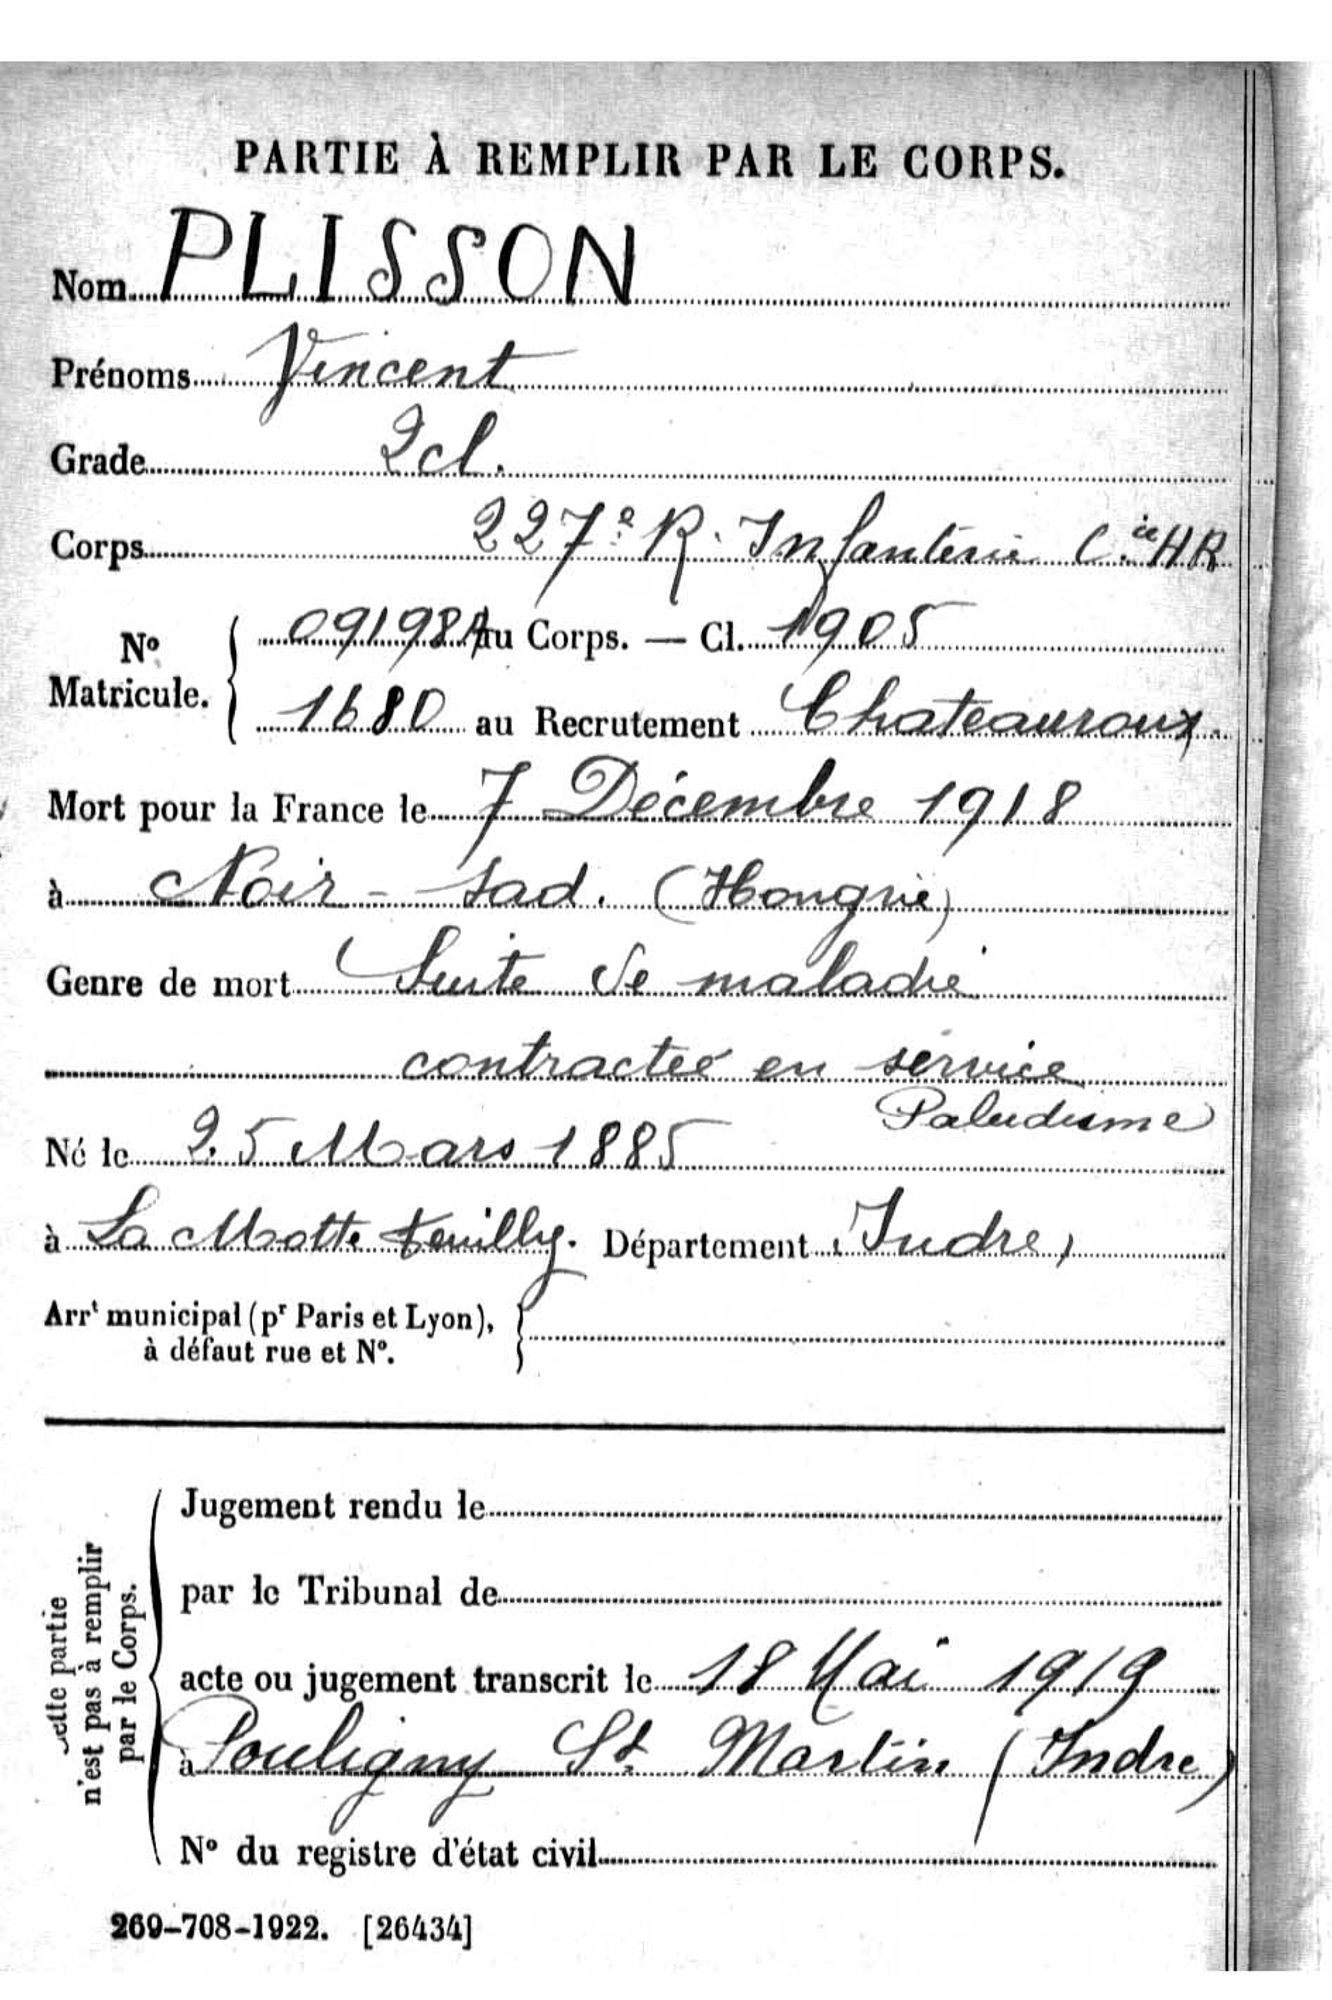 PARTIE À REMPLIR PAR LE CORPS.
Nom PLISSON
Prénoms Vincent
Grade 2 cl.
Corps 227e R. Infanterie Cie HR
No Matricule. { 09198 Au Corps. — Cl. 1905
1680 au Recrutement Chateauroux
Mort pour la France le 7 Décembre 1918
à Noir-Sad. (Hongrie)
Genre de mort Suite de maladie
contractée en service
Paludisme
Né le 25 Mars 1885
à La Motte feuilly. Département Indre,
Arrt municipal (pr Paris et Lyon), à défaut rue et No. }
Cette partie n'est pas à remplir par le Corps.
Jugement rendu le
par le Tribunal de
acte ou jugement transcrit le 18 Mai 1919
à Pouligny St Martin (Indre)
No du registre d'état civil
269-708-1922. [26434]